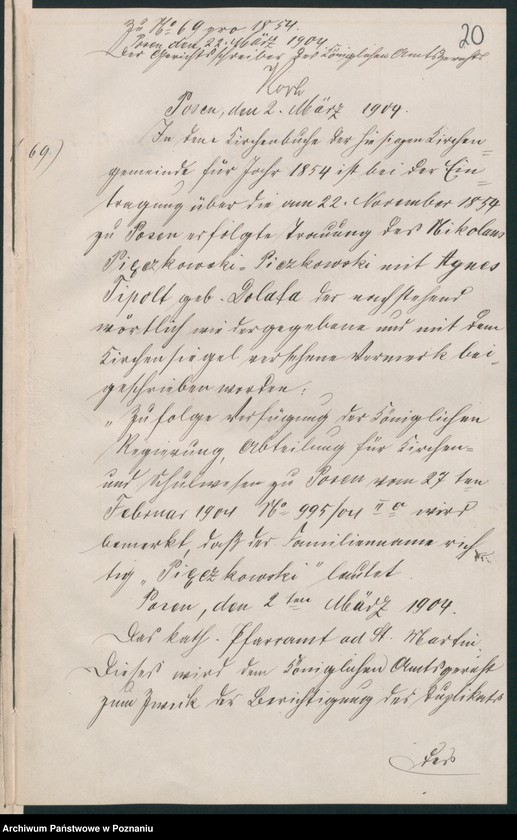 Zu No 69 pro 1854.
Posen, den 22. März 1904
Der Gerichtsschreiber des Königlichen Amtsgerichts
20
Posen, den 2. März 1904.
69.)
In dem Kirchenbuche der hiesigen Kirchen=
gemeinde für Jahr 1854 ist bei der Ein=
tragung über die am 22. November 1854
zu Posen erfolgte Trauung des Nikolaus
Pięczkowski-Piczkowski mit Agnes
Tipolt geb. Dolata der nachstehend
wörtlich wiedergegebene und mit dem
Kirchensiegel versehene Vermerk bei=
geschrieben worden:
„Zufolge Verfügung der Königlichen
Regierung, Abteilung für Kirchen=
und Schulwesen zu Posen vom 27 ten
Februar 1904 No 995/04 II a wird
bemerkt, daß der Familienname rich=
tig „Pięczkowski" lautet.
Posen, den 2 ten März 1904.
Das kath. Pfarramt ad St. Martin.
Dieses wird dem Königlichen Amtsgericht
zum Zweck der Berichtigung des Duplikats
des
Archiwum Państwowe w Poznaniu